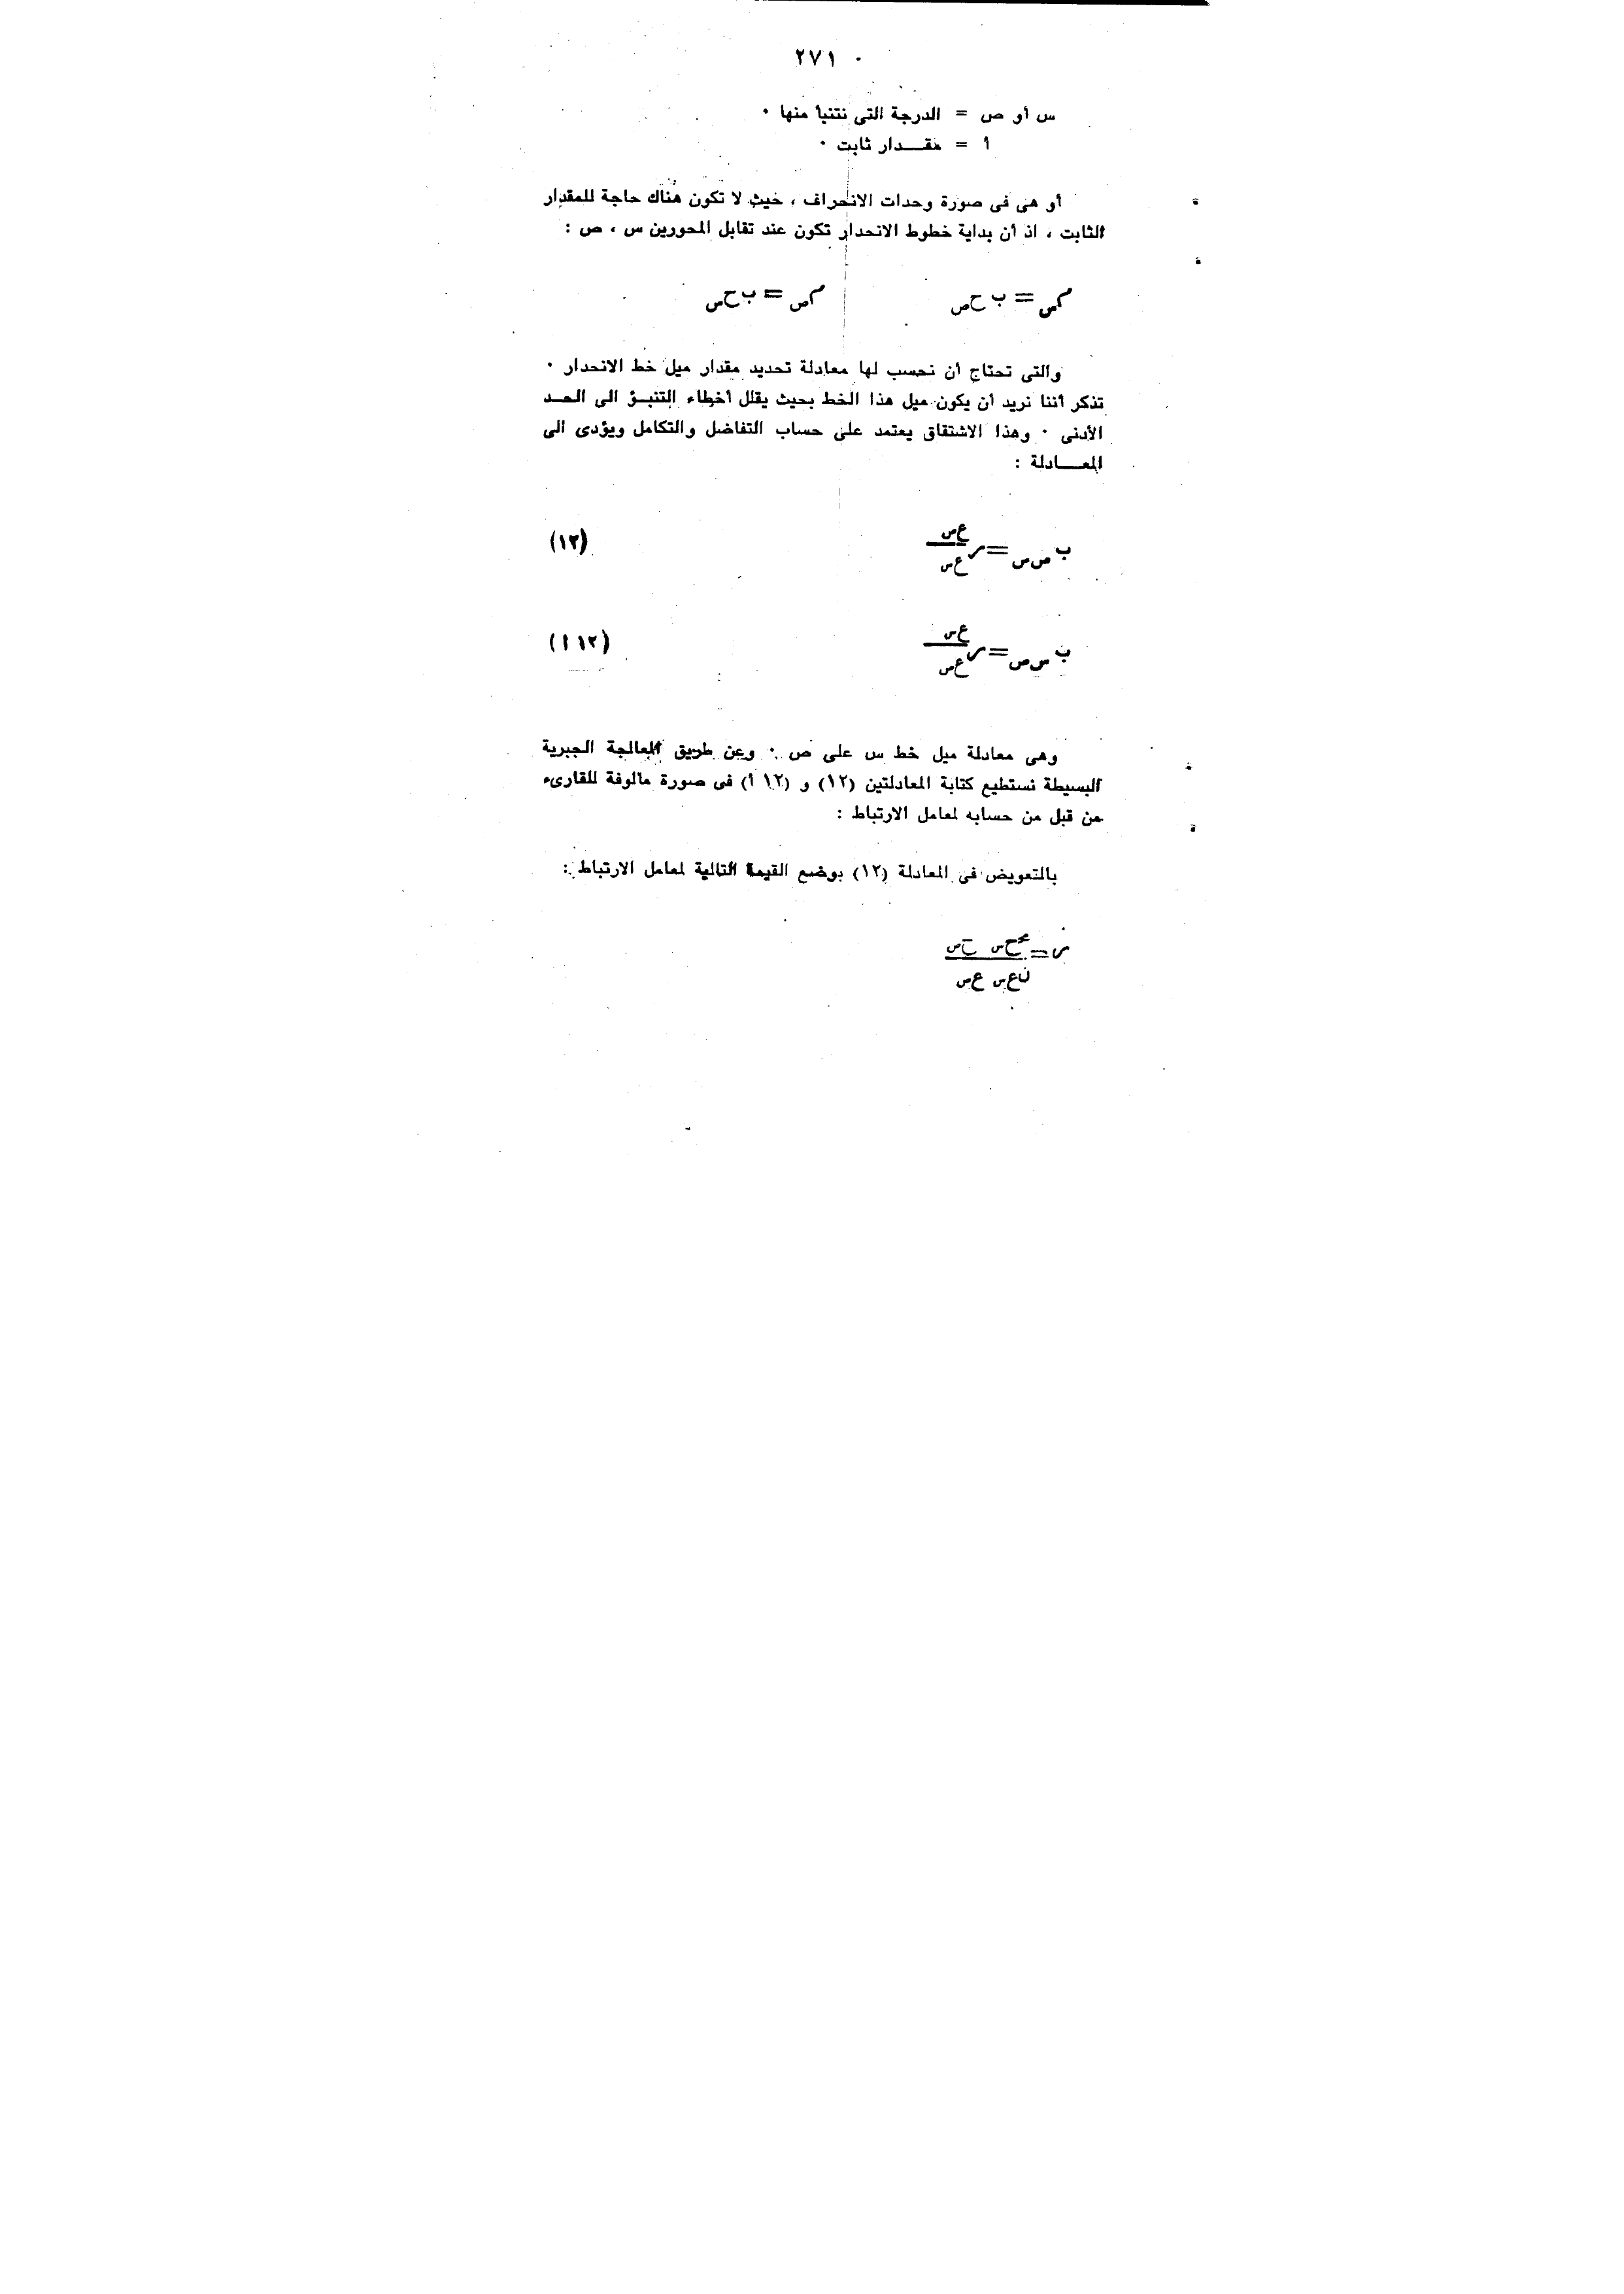 ٢٧١
س أو ص = الدرجة التى نتنبأ منها ٠
أ = مقـــدار ثابت ٠
أو هى فى صورة وحدات الانحراف ، حيث لا تكون هناك حاجة للمقدار
الثابت ، اذ أن بداية خطوط الانحدار تكون عند تقابل المحورين س ، ص :
مس = ب حص مص = ب حس
والتى تحتاج أن نحسب لها معادلة تحديد مقدار ميل خط الانحدار ٠
تذكر أننا نريد أن يكون ميل هذا الخط بحيث يقلل أخطاء التنبـؤ الى الحـد
الأدنى ٠ وهذا الاشتقاق يعتمد على حساب التفاضل والتكامل ويؤدى الى
المعـــادلة :
ب ص س = ر عص / عس (١٢)
ب س ص = ر عس / عص (١٢ أ)
وهى معادلة ميل خط س على ص ٠ وعن طريق المعالجة الجبرية
البسيطة نستطيع كتابة المعادلتين (١٢) و (١٢ أ) فى صورة مالوفة للقارىء
من قبل من حسابه لمعامل الارتباط :
بالتعويض فى المعادلة (١٢) بوضع القيمة التالية لمعامل الارتباط :
ر = مج حس حص / ن عس عص